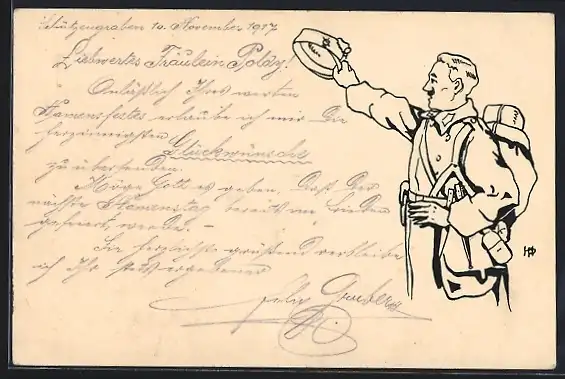 Schützengraben 10. November 1917
Liebwertes Fräulein Poldy!
Anläßlich Ihres werten
Namensfestes erlaube ich mir die
herzinnigsten
Glückwünsche
zu übersenden.
Möge Gott es geben, daß der
nächste Namenstag bereits im Frieden
gefeiert werde. –
Sie herzlichste grüßend verbleibe
ich Ihr stets ergebener
Felix